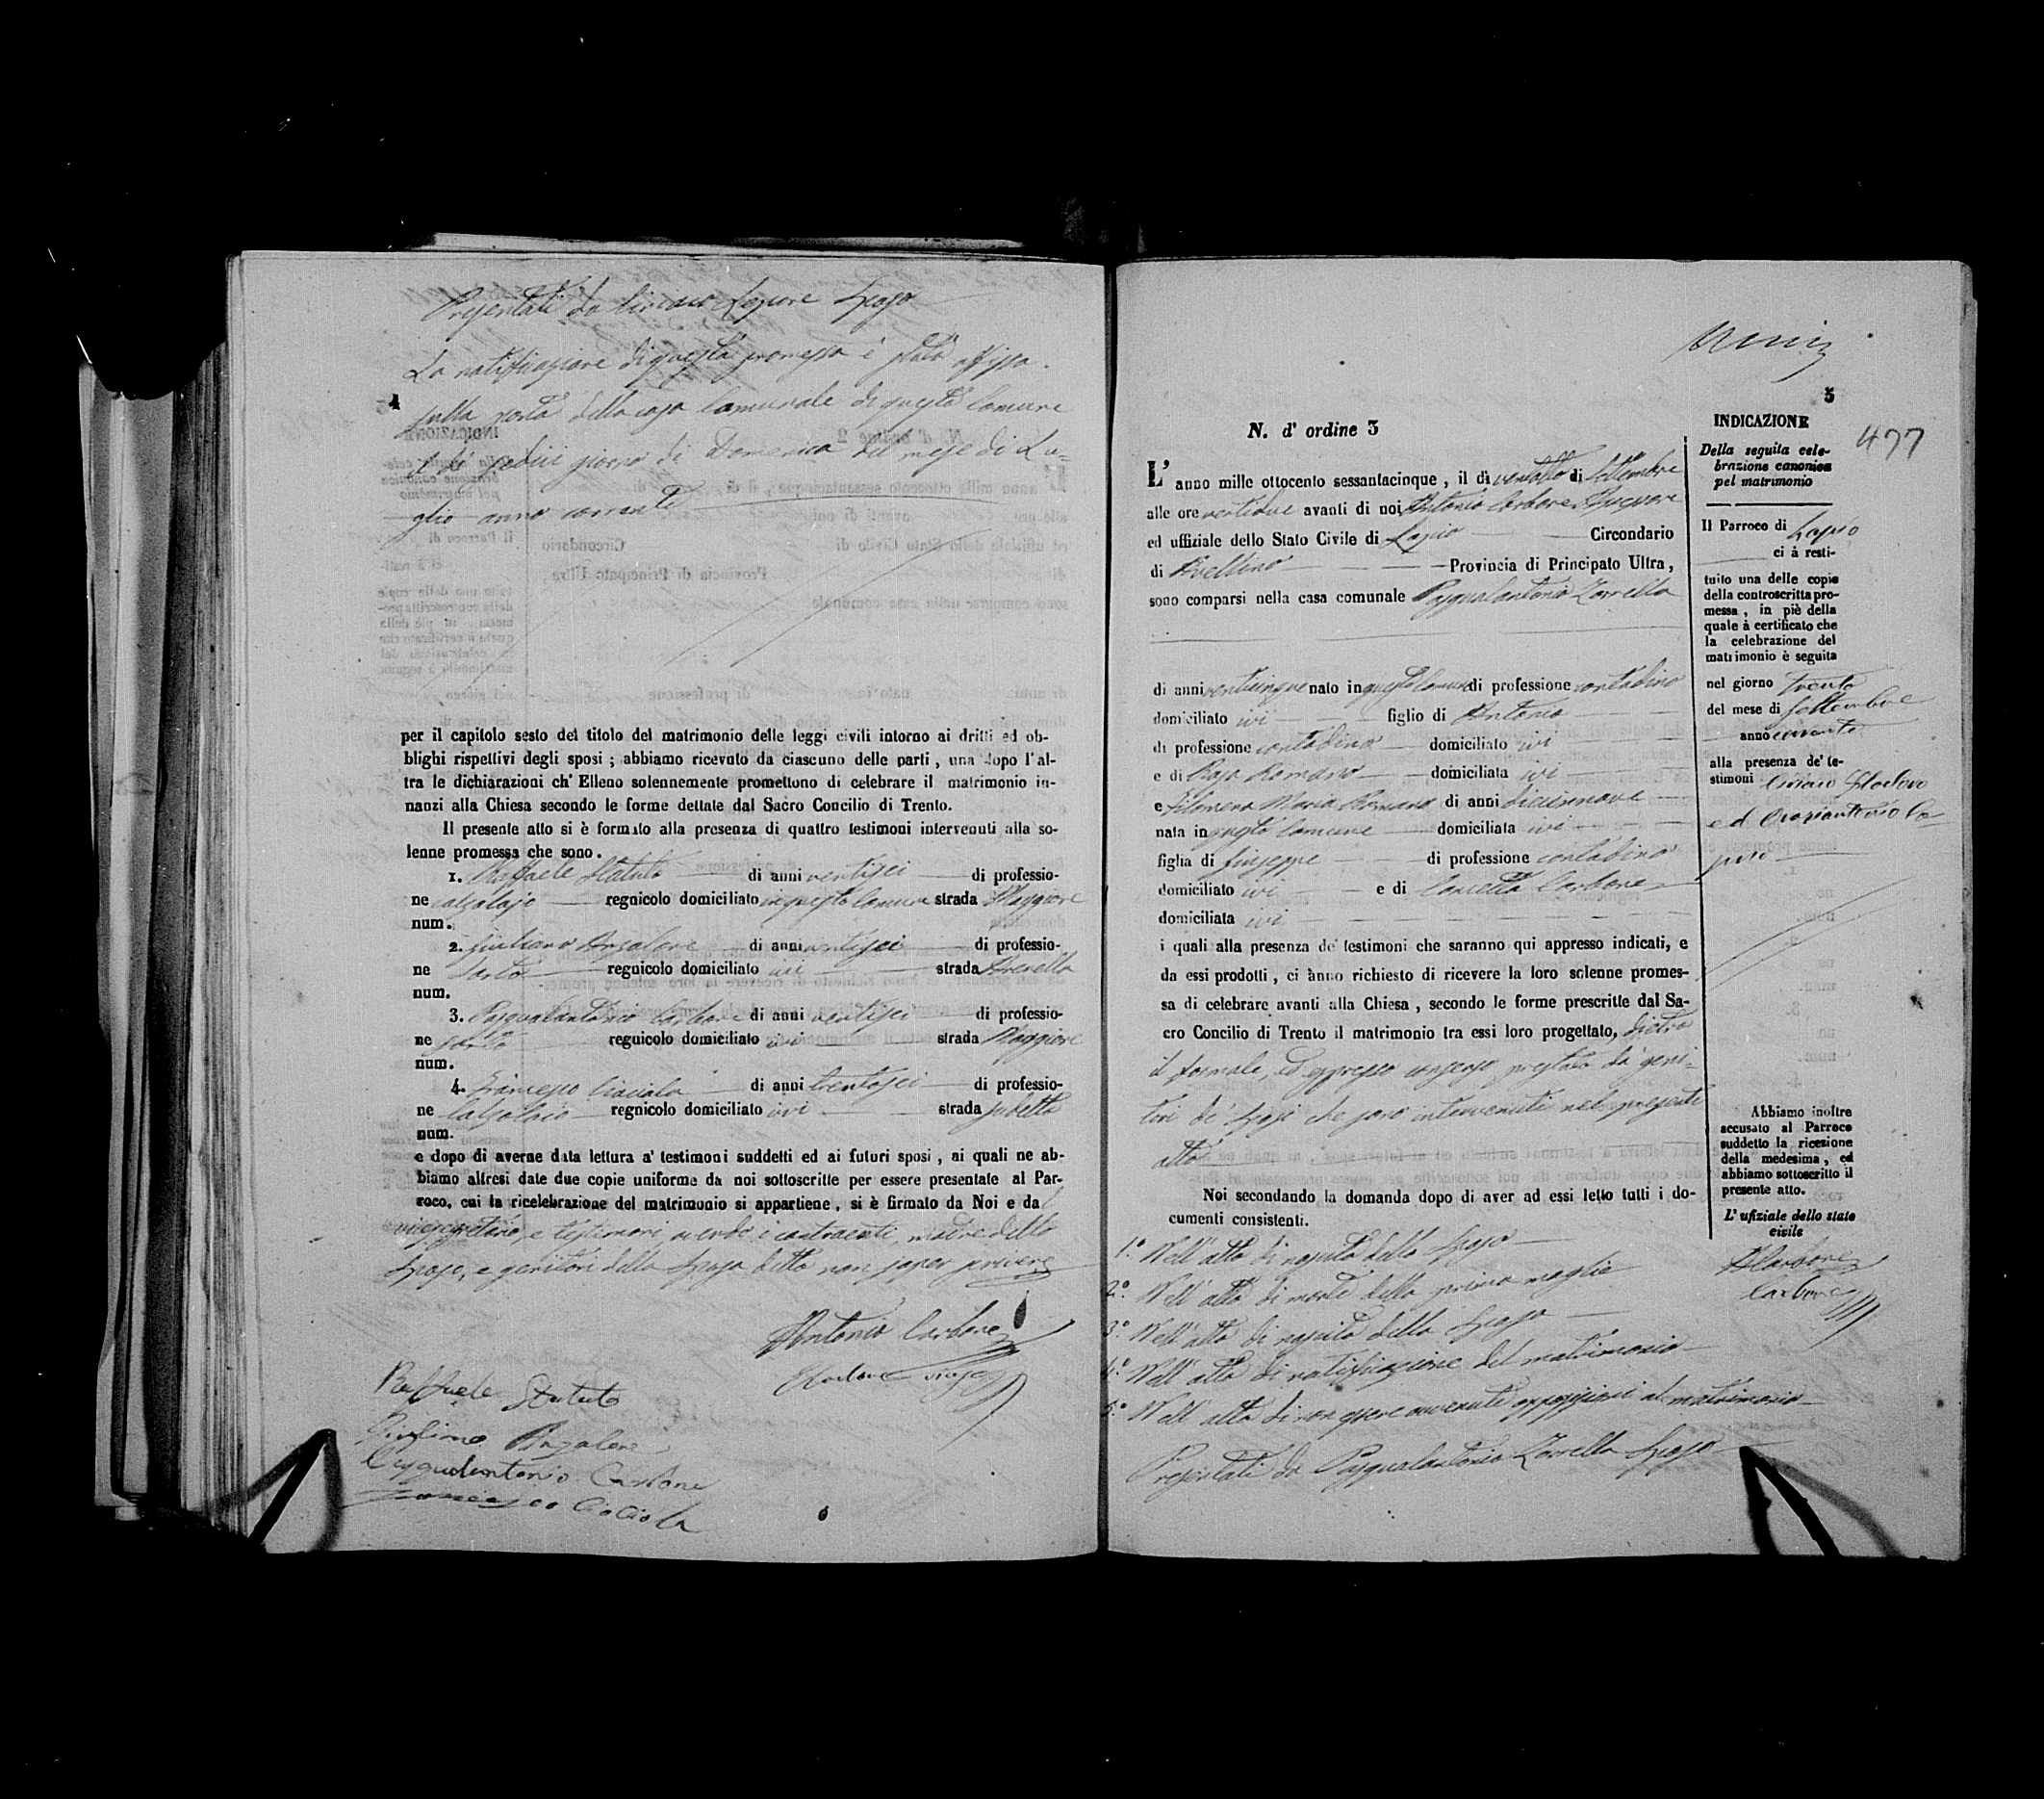 Presentati da Ciriaco Lepore Sposo
La notificazione di questa promessa è stata affissa
4
sulla porta della casa Comunale di questo Comune
il dì sedici giorno di Domenica del mese di Lu-
glio anno corrente
per il capitolo sesto del titolo del matrimonio delle leggi civili intorno ai dritti ed ob-
blighi rispettivi degli sposi ; abbiamo ricevuto da ciascuno delle parti , una dopo l' al-
tra le dichiarazioni ch' Elleno solennemente promettono di celebrare il matrimonio in-
nanzi alla Chiesa secondo le forme dettate dal Sacro Concilio di Trento.
Il presente atto si è formato alla presenza di quattro testimoni intervenuti alla so-
lenne promessa che sono.
1. Raffaele Statuto di anni ventisei di professio-
ne calzolajo regnicolo domiciliato in questo Comune strada Maggiore
num.
2. Giuliano Anzalone di anni ventisei di professio-
ne Sarto regnicolo domiciliato ivi strada
num.
3. Pasqualantonio Carbone di anni ventisei di professio-
ne Sarto regnicolo domiciliato ivi strada Maggiore
num.
4. Francesco Ciociola di anni trentasei di professio-
ne Calzolaio regnicolo domiciliato ivi strada
num.
e dopo di averne data lettura a' testimoni suddetti ed ai futuri sposi , ai quali ne ab-
biamo altresì date due copie uniforme da noi sottoscritte per essere presentate al Par-
roco, cui la ricelebrazione del matrimonio si appartiene , si è firmato da Noi e da
e testimoni avendo i contraenti, madre dello
Sposo, e genitori della Sposa detto non saper scrivere
Antonio Carbone
Raffaele Statuto
Giuliano Anzalone
Pasqualantonio Carbone
Francesco Ciociola
5
N. d' ordine 3
L' anno mille ottocento sessantacinque , il dì ventotto di Settembre
alle ore ventidue avanti di noi Antonio Carbone Assessore
ed uffiziale dello Stato Civile di Lapio Circondario
di Avellino Provincia di Principato Ultra ,
sono comparsi nella casa comunale Pasqualantonio Zarrella
di anni venticinque nato in questo Comune di professione contadino
domiciliato ivi figlio di Antonio
di professione contadino domiciliato ivi
e di Rosa Romano domiciliata ivi
e Filomena Maria Romano di anni diciannove
nata in questo Comune domiciliata ivi
figlia di Giuseppe di professione contadino
domiciliato ivi e di Concetta Carbone
domiciliata ivi
i quali alla presenza de' testimoni che saranno qui appresso indicati, e
da essi prodotti , ci ànno richiesto di ricevere la loro solenne promes-
sa di celebrare avanti alla Chiesa , secondo le forme prescritte dal Sa-
cro Concilio di Trento il matrimonio tra essi loro progettato, dietro
il formale, ed espresso consenso prestato da' geni-
tori de' Sposi che sono intervenuti nel presente
atto
Noi secondando la domanda dopo di aver ad essi letto tutti i do-
cumenti consistenti.
1.° Nell' atto di nascita dello Sposo
2.° Nell' atto di morte della prima moglie
3.° Nell' atto di nascita della Sposa
4.° Nell' atto di notificazione del matrimonio
5.° Nell' atto di non essere avvenute opposizioni al matrimonio
Presentati da Pasqualantonio Zarrella Sposo
INDICAZIONE
477
Della seguita cele-
brazione canonica
pel matrimonio
Il Parroco di Lapio
ci à resti-
tuito una delle copie
della controscritta pro-
messa , in piè della
quale à certificato che
la celebrazione del
matrimonio è seguita
nel giorno trenta
del mese di Settembre
anno corrente
alla presenza de' te-
stimoni Ciriaco
ed Oraziantonio Ca-
puto
Abbiamo inoltre
accusato al Parroco
suddetto la ricezione
della medesima , ed
abbiamo sottoscritto il
presente atto.
L' ufiziale dello stato
civile
A Carbone
Carbone